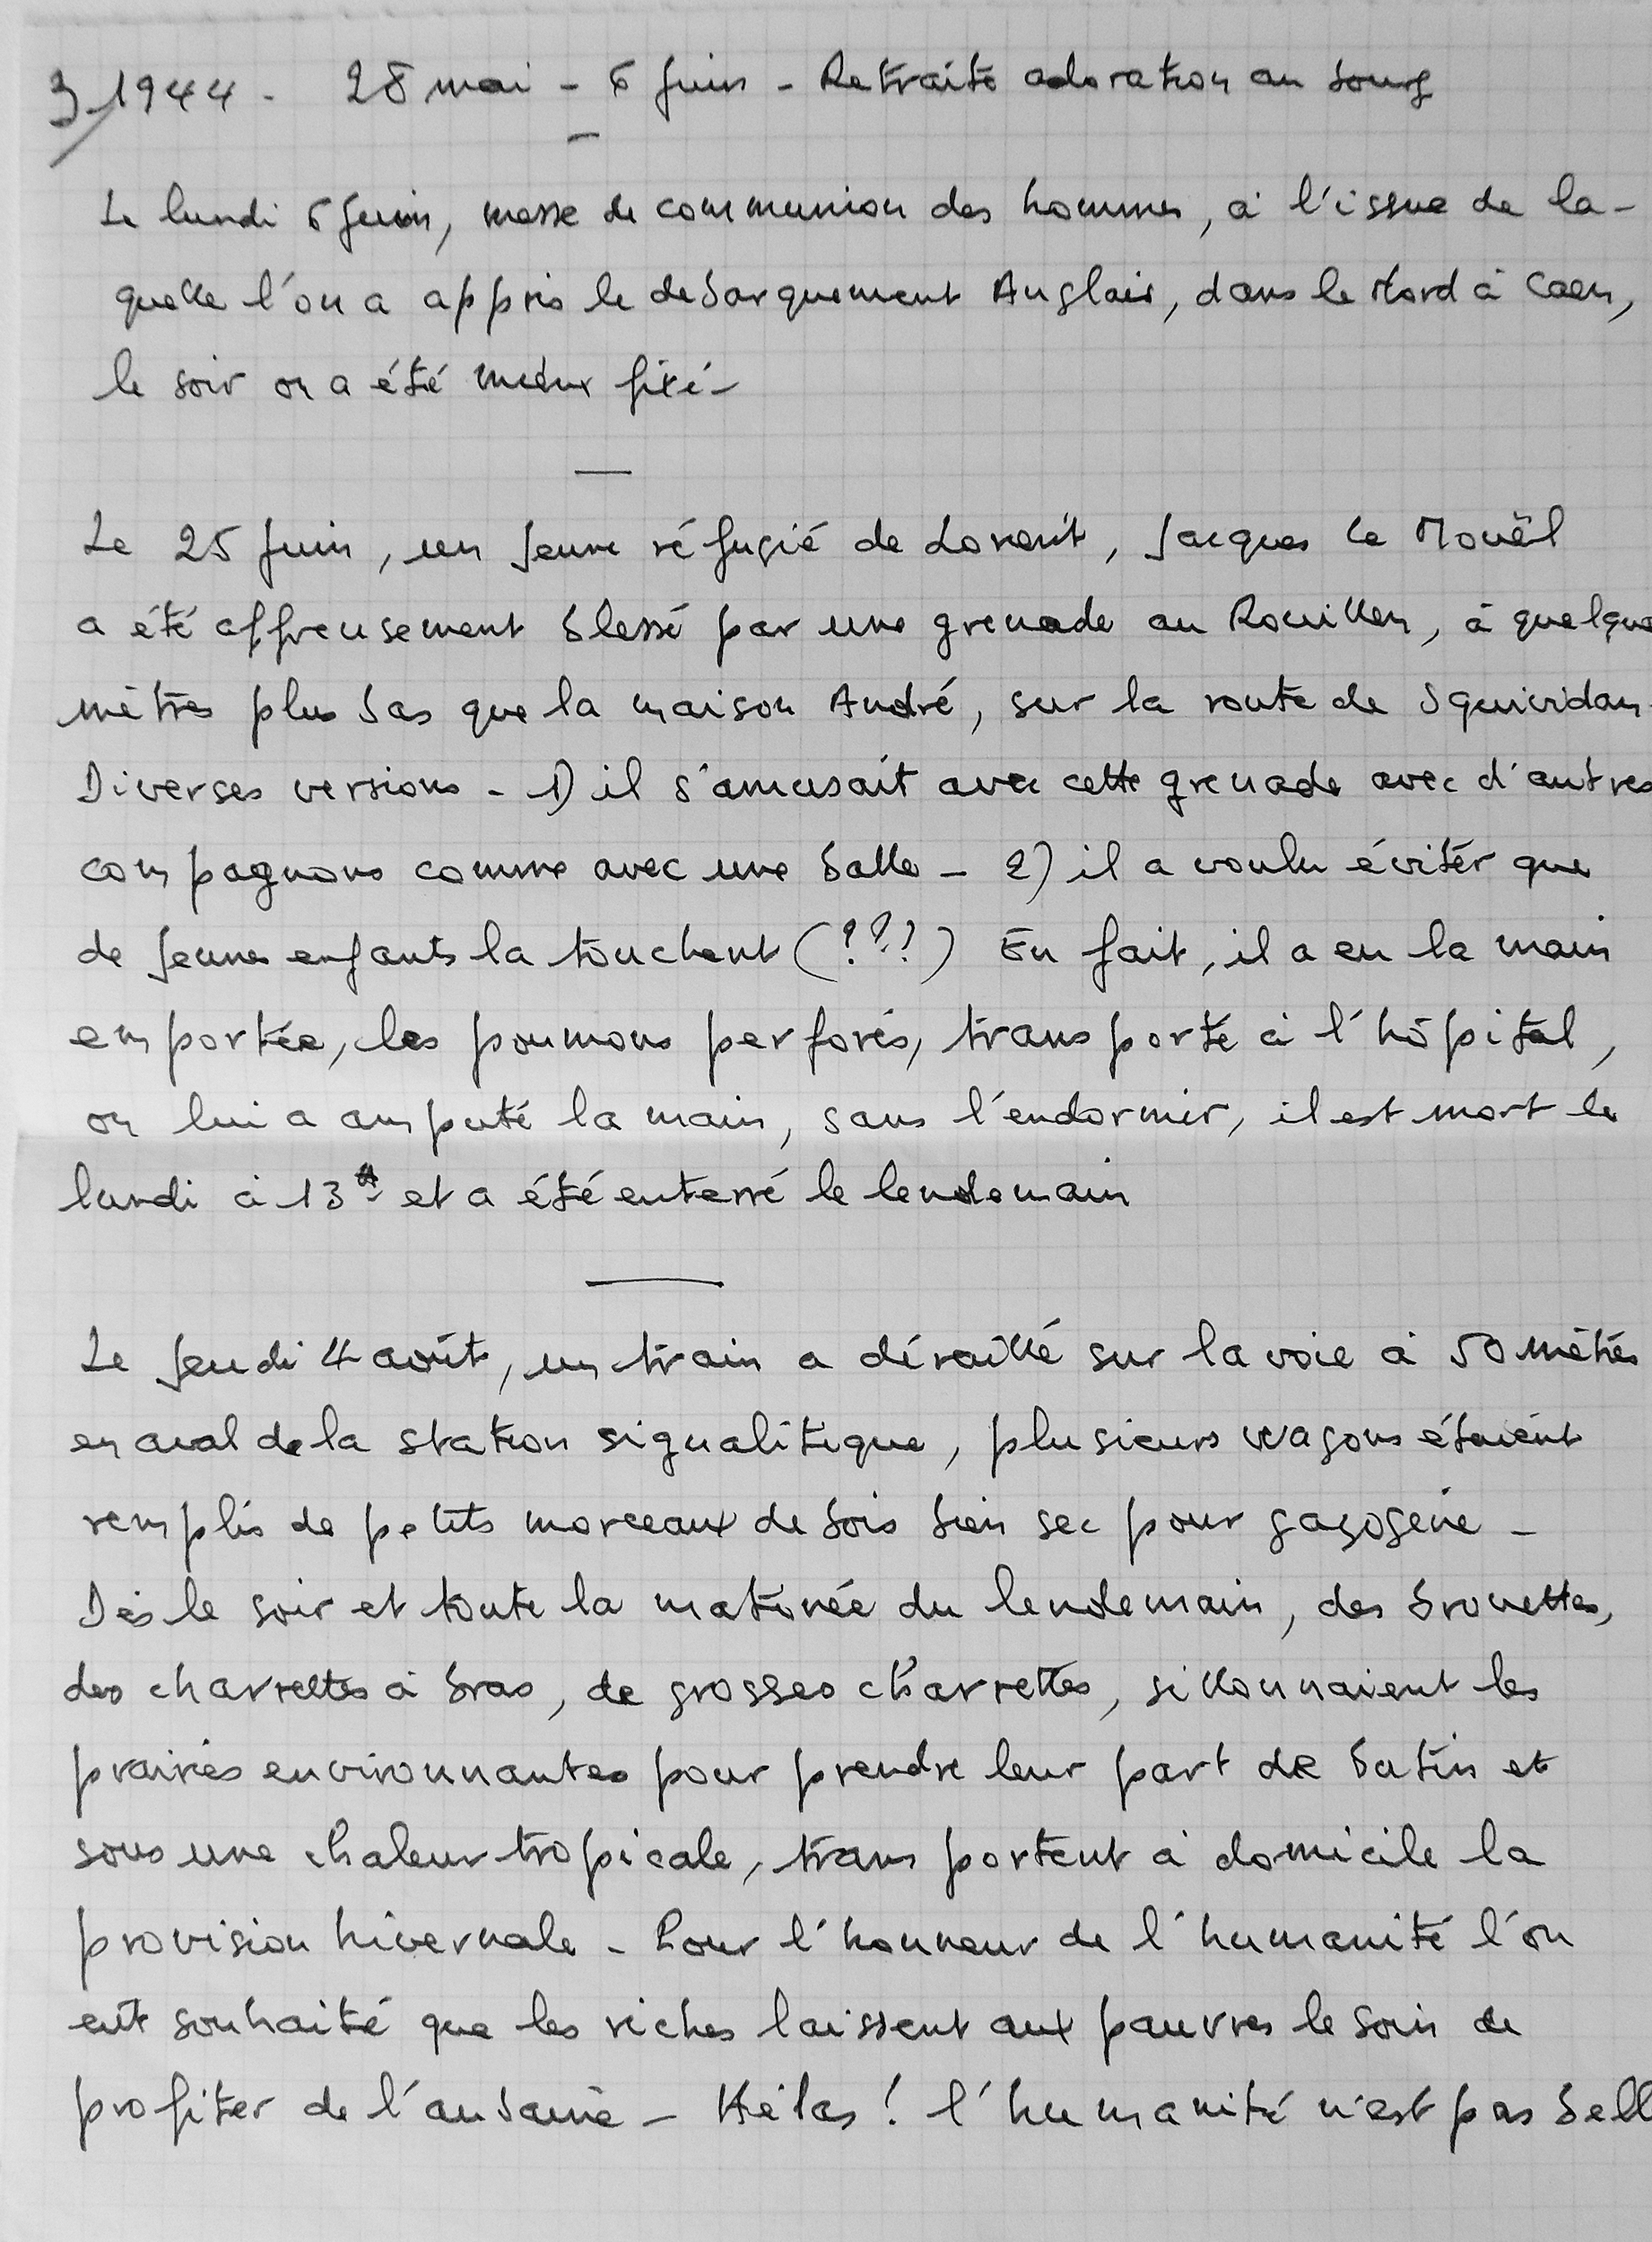 3/ 1944 - 28 mai - 6 juin - Retraite adoration au bourg
Le lundi 6 juin, messe de communion des hommes, à l'issue de la-
quelle l'on a appris le debarquement Anglais, dans le Nord à Caen,
le soir on a été mieux fixé -
Le 25 juin, un jeune réfugié de Lorient, Jacques Le Mouël
a été affreusement blessé par une grenade au Rouillen, à quelques
mètres plus bas que la maison André, sur la route de Squividan
Diverses versions - 1) il s'amusait avec cette grenade avec d'autres
compagnons comme avec une balle - 2) il a voulu éviter que
de jeunes enfants la touchent (???) En fait, il a eu la main
emportée, les poumons perforés, transporté à l'hôpital,
on lui a amputé la main, sans l'endormir, il est mort le
lundi à 13h et a été enterré le lendemain
Le jeudi 4 août, un train a déraillé sur la voie à 50 mètres
en aval de la station signalitique, plusieurs wagons étaient
remplis de petits morceaux de bois bien sec pour gazogène -
Dès le soir et toute la matinée du lendemain, des brouettes,
des charrettes à bras, de grosses charrettes, sillonnaient les
prairies environnantes pour prendre leur part de butin et
sous une chaleur tropicale, transportent à domicile la
provision hivernale - Pour l'honneur de l'humanité l'on
eût souhaité que les riches laissent aux pauvres le soin de
profiter de l'aubaine - Hélas ! l'humanité n'est pas bell